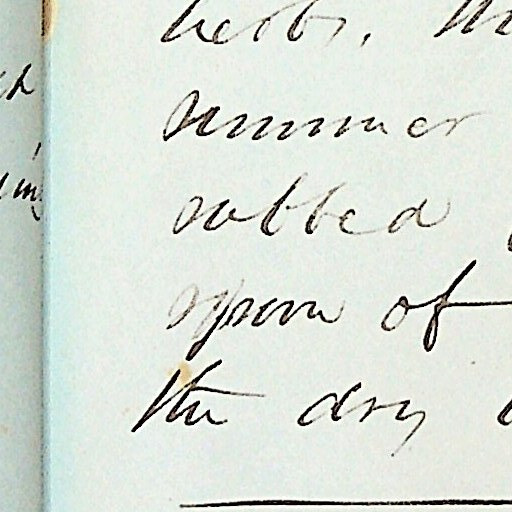 herbs. 
summer
rubbed
spoon of
the dry